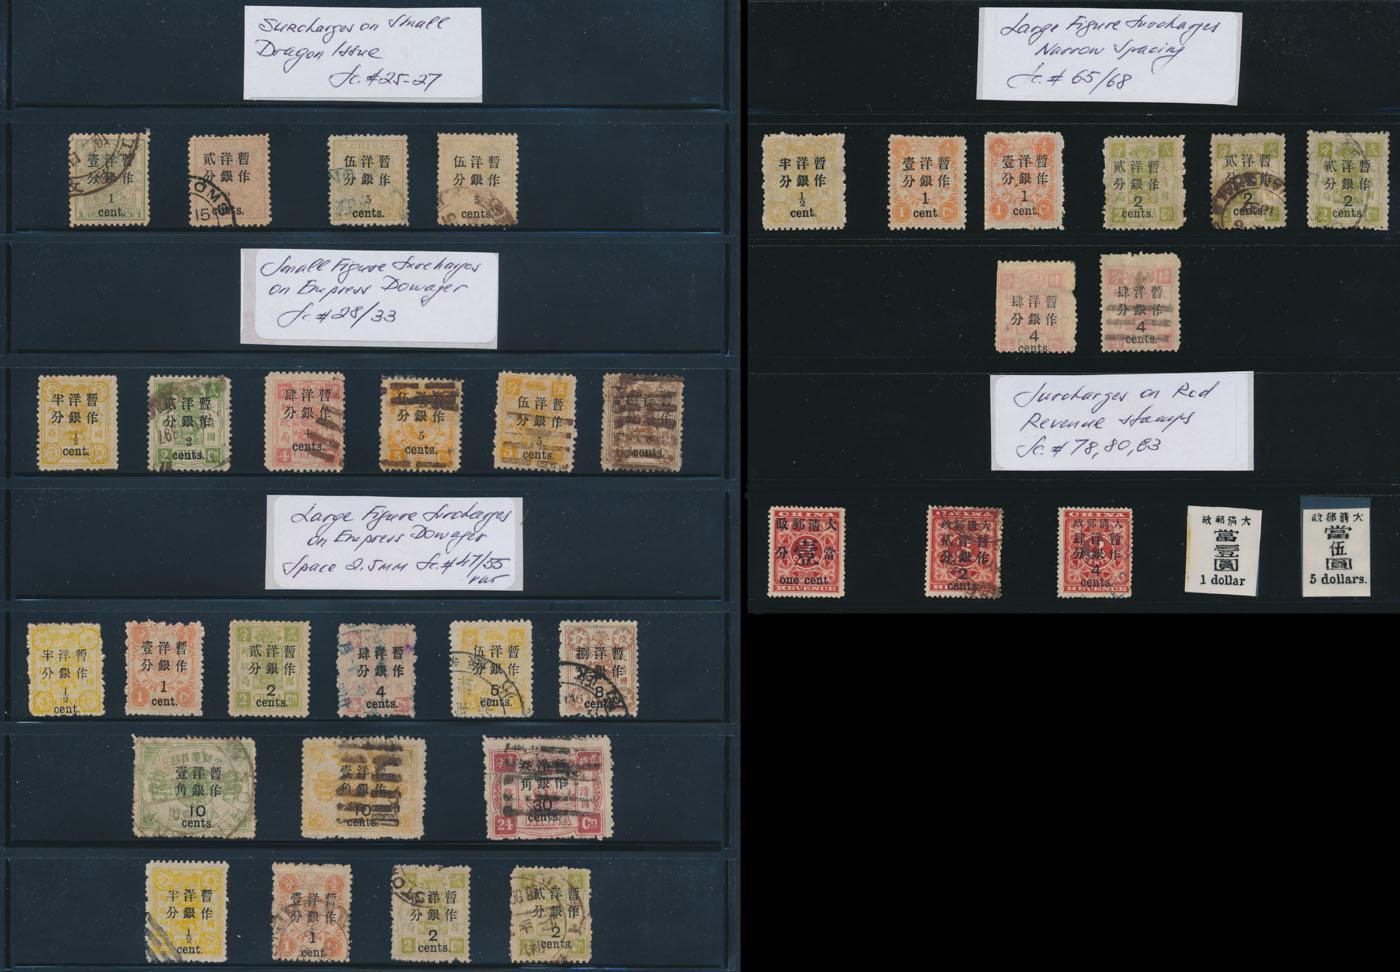 Surcharges on Small
Dragon Issue
Sc. #25-27
暫洋壹
作銀分
1
cent.
暫洋貳
作銀分
cents.
暫洋伍
作銀分
5
cents.
暫洋伍
作銀分
5
cents.
Small Figure Surcharges
on Empress Dowager
Sc. #28/33
暫洋半
作銀分
½
cent.
暫洋貳
作銀分
2
cents.
暫洋肆
作銀分
4
cents.
暫洋伍
作銀分
5
cents.
暫洋伍
作銀分
5
cents.
Large Figure Surcharges
on Empress Dowager
Space 2.5mm Sc. #47/55
var
暫洋半
作銀分
½
cent.
暫洋壹
作銀分
1
cent.
暫洋貳
作銀分
2
cents.
暫洋肆
作銀分
4
cents.
暫洋伍
作銀分
5
cents.
暫洋捌
作銀分
8
cents.
暫洋壹
作銀角
10
cents.
暫洋壹
作銀角
10
cents.
暫洋叁
作銀角
30
cents.
24
暫洋半
作銀分
½
cent.
暫洋壹
作銀分
1
cent.
暫洋貳
作銀分
2
cents.
暫洋貳
作銀分
2
cents.
Large Figure Surcharges
Narrow Spacing
Sc. # 65/68
暫洋半
作銀分
½
cent.
暫洋壹
作銀分
1
cent.
暫洋壹
作銀分
1
cent.
暫洋貳
作銀分
2
cents.
暫洋貳
作銀分
2
cents.
暫洋貳
作銀分
2
cents.
暫洋肆
作銀分
4
cents.
暫洋肆
作銀分
4
cents.
Surcharges on Red
Revenue stamps
Sc. #78,80,83
CHINA
大清郵政
當壹分
one cent.
REVENUE
CHINA
大清郵政
暫洋貳
作銀分
2
cents.
CHINA
大清郵政
暫洋肆
作銀分
4
cents.
REVENUE
大清郵政
當
壹
圓
1 dollar
大清郵政
當
伍
圓
5 dollars.